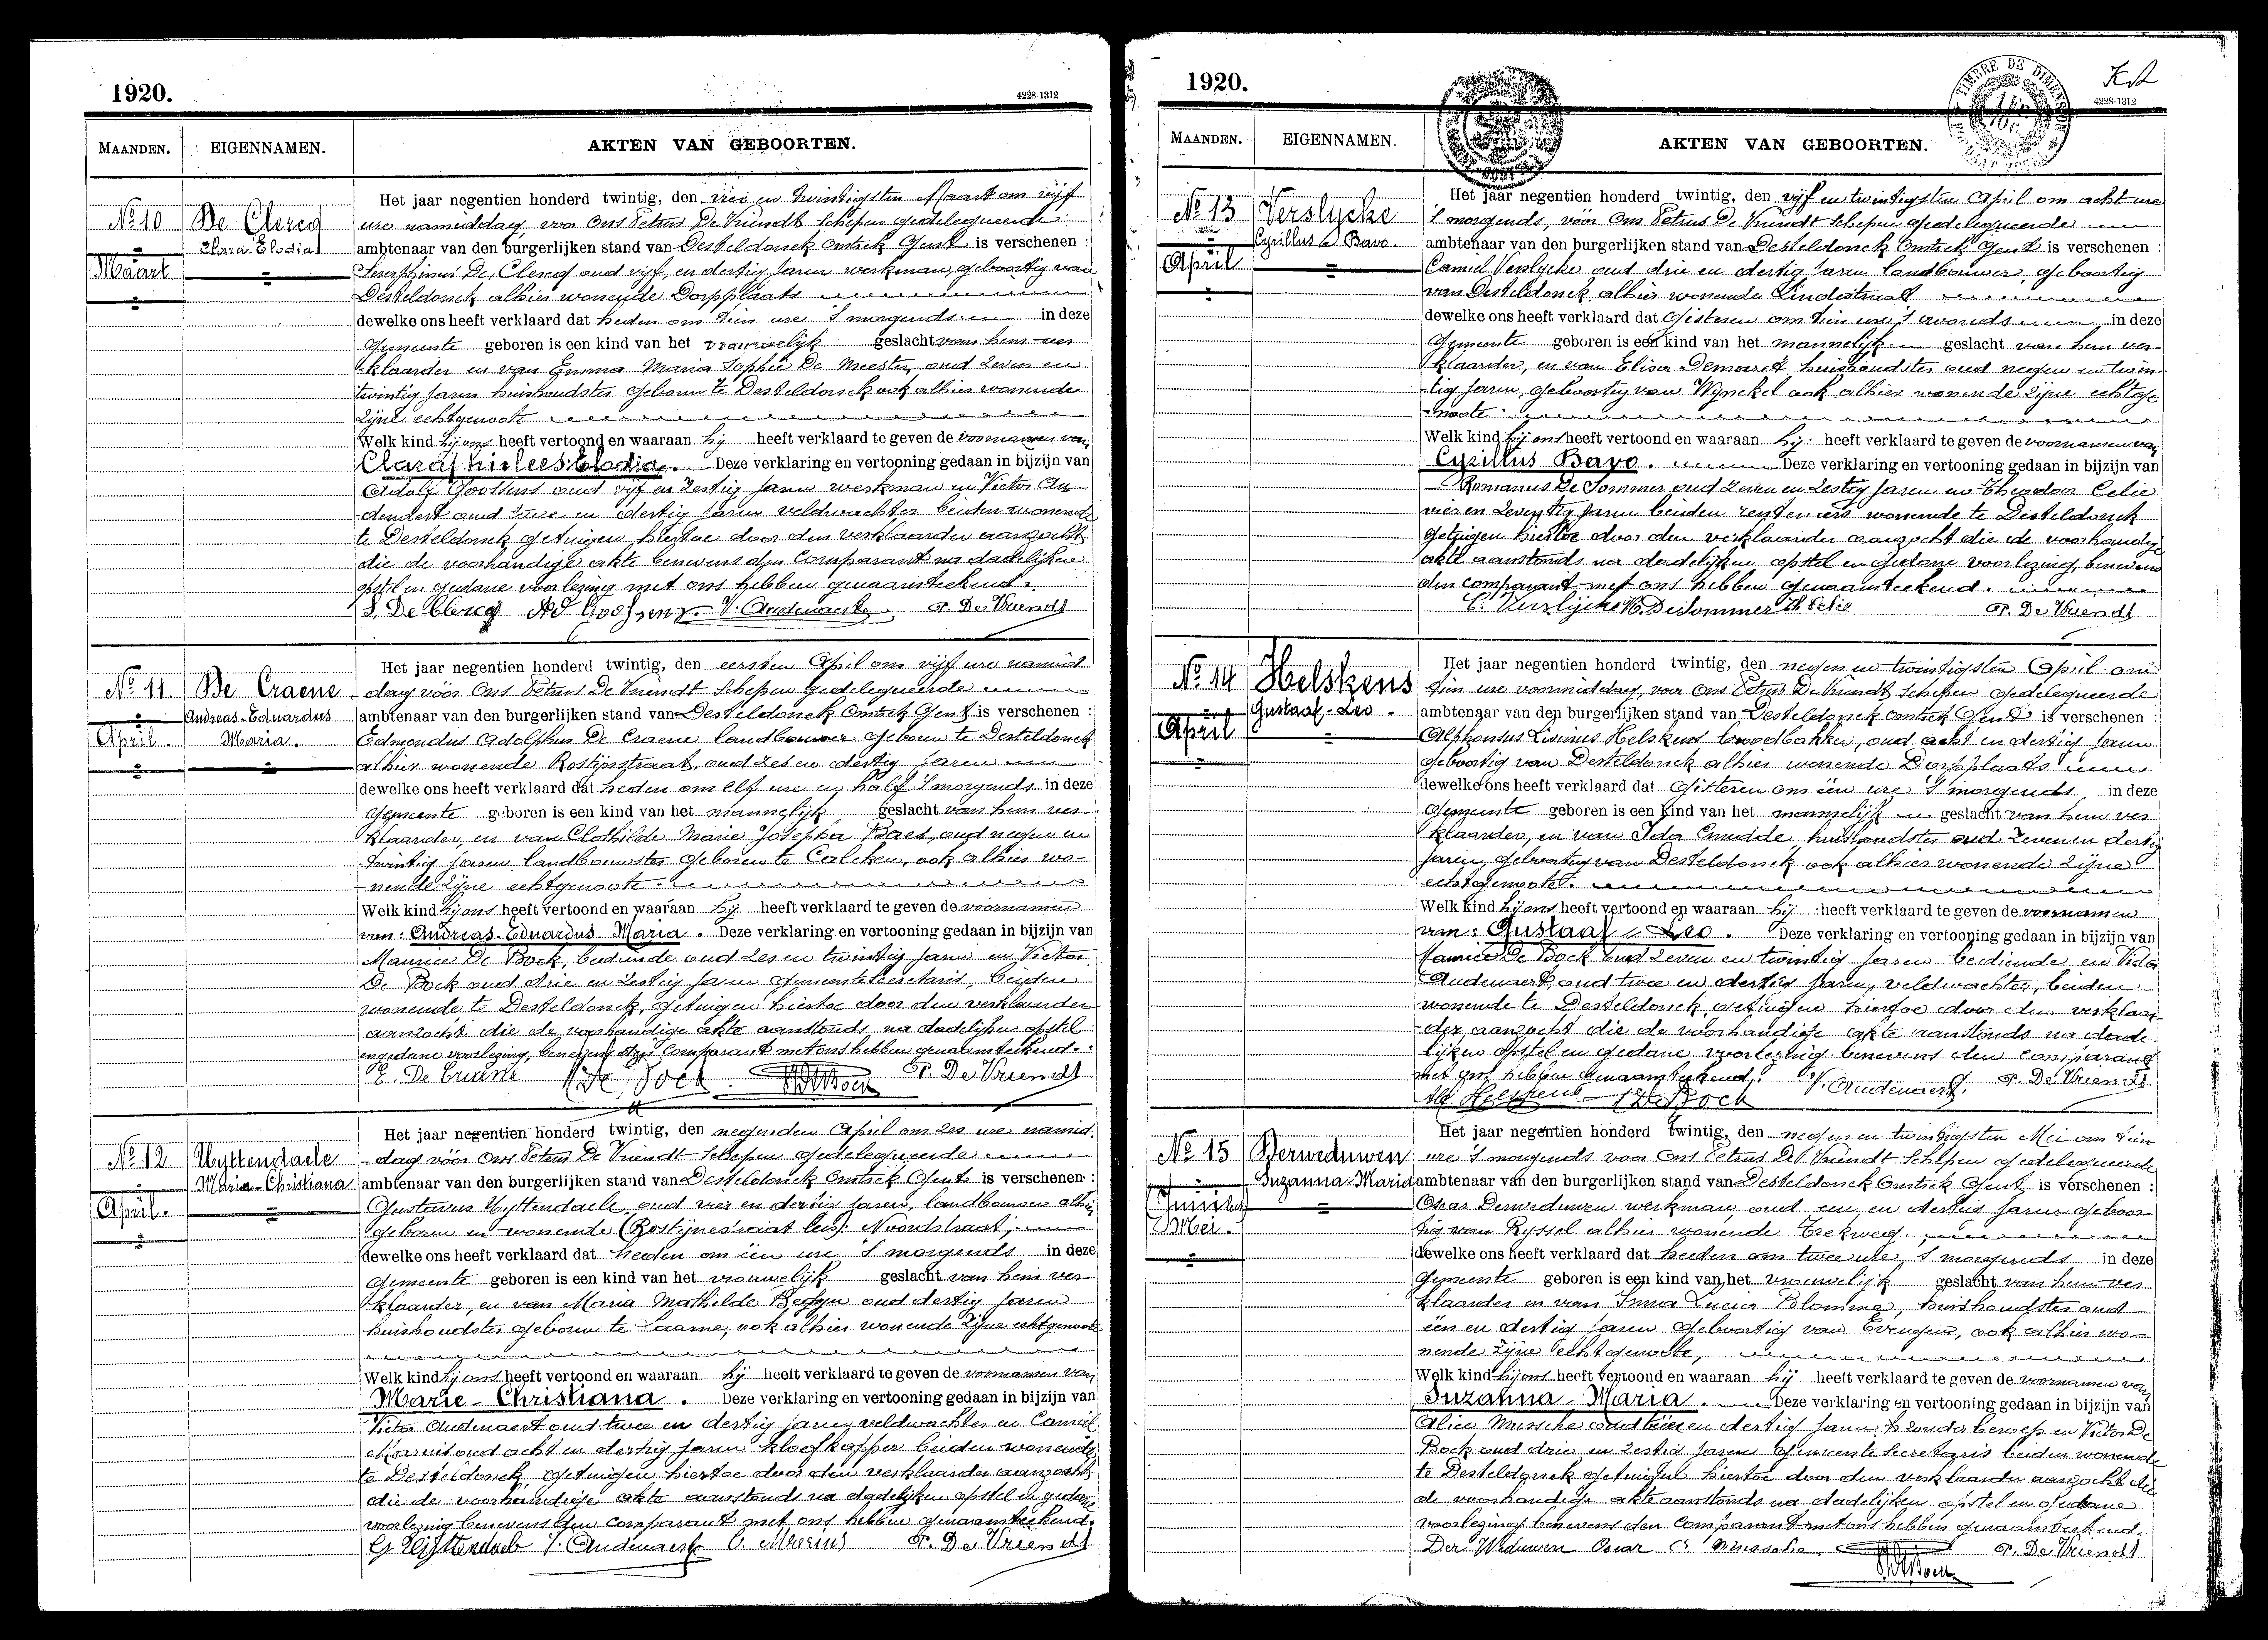 1920.
4228-1312
MAANDEN.
EIGENNAMEN.
AKTEN VAN GEBOORTEN.
No 10
De Clercq
Clara Elodia
Maart
Het jaar negentien honderd twintig, den vier en twintigsten Maart om vijf
ure namiddag voor Ons Petrus De Vriendt Schepen gedelegueerde
ambtenaar van den burgerlijken stand van Desteldonck Omtrek Gent is verschenen :
Seraphinus De Clercq oud vijf en dertig Jaren werkman, geboortig van
Desteldonck alhier wonende Dorpplaats
dewelke ons heeft verklaard dat heden om tien ure 's morgends in deze
Gemeente geboren is een kind van het vrouwelijk geslacht van hem ver-
klaarder en van Emma Maria Sophie De Meester, oud zeven en
twintig Jaren huishoudster geboren te Desteldonck ook alhier wonende
zijne echtgenoote
Welk kind hij ons heeft vertoond en waaraan hij heeft verklaard te geven de voornamen van
Clara Elodia. Deze verklaring en vertooning gedaan in bijzijn van
Adolf Goossens oud vijf en zestig Jaren werkman en Victor Au-
denaert oud twee en dertig Jaren veldwachter beiden wonende
te Desteldonck getuigen hiertoe door den verklaarder aanzocht
die de voorhandige akte benevens den Comparant na dadelijken
opstel en gedane voorlezing met ons hebben genaamteekend.
S. De Clercq Ad Goossens V. Audenaert P. De Vriendt
No 11.
De Craene
Andreas-Eduardus
Maria.
April.
Het jaar negentien honderd twintig, den eersten April om vijf ure namid-
dag vóór Ons Petrus De Vriendt Schepen gedelegueerde
ambtenaar van den burgerlijken stand van Desteldonck Omtrek Gent is verschenen :
Edmondus Adolphus De Craene landbouwer geboren te Desteldonck
alhier wonende Rostijnstraat, oud zes en dertig Jaren
dewelke ons heeft verklaard dat heden om elf ure en half 's morgends in deze
Gemeente geboren is een kind van het mannelijk geslacht van hem ver-
klaarder, en van Clothilde Marie Josepha Baes, oud negen en
twintig jaren landbouwster geboren te Calcken, ook alhier wo-
nende zijne echtgenoote.
Welk kind hij ons heeft vertoond en waaraan hij heeft verklaard te geven de voornamen
van: Andreas-Eduardus-Maria. Deze verklaring en vertooning gedaan in bijzijn van
Maurice De Bock, bediende oud zes en twintig Jaren en Victor
De Bock oud drie en zestig Jaren Gemeente Secretaris, beiden
wonende te Desteldonck, getuigen hiertoe door den verklaarder
aanzocht die de voorhandige akte aanstonds na dadelijken opstel
en gedane voorlezing, benevens den Comparant met ons hebben genaamteekend.
E. De Craene De Bock P. De Vriendt
No 12.
Uyttendaele
Maria-Christiana
April.
Het jaar negentien honderd twintig, den negenden April om zes ure namid-
dag vóór Ons Petrus De Vriendt Schepen gedelegueerde
ambtenaar van den burgerlijken stand van Desteldonck Omtrek Gent is verschenen :
Gustavus Uyttendaele oud vier en dertig Jaren, landbouwer alhier
geboren en wonende (Rostijnestraat Noordstraat,
dewelke ons heeft verklaard dat heden om één ure 's morgends in deze
Gemeente geboren is een kind van het vrouwelijk geslacht van hem ver-
klaarder, en van Maria Mathilde oud dertig Jaren
huishoudster geboren te Laarne, ook alhier wonende zijne echtgenoote
Welk kind hij ons heeft vertoond en waaraan hij heeft verklaard te geven de voornamen van
Marie-Christiana. Deze verklaring en vertooning gedaan in bijzijn van
Victor Audenaert oud twee en dertig Jaren veldwachter en Camiel
oud acht en dertig Jaren beiden wonende
te Desteldonck getuigen hiertoe door den verklaarder aanzocht
die de voorhandige akte aanstonds na dadelijken opstel en gedane
voorlezing benevens den Comparant met ons hebben genaamteekend.
G Uyttendaele V. Audenaert C. P. De Vriendt
1920.
TIMBRE DE DIMENSION
4228-1312
MAANDEN.
EIGENNAMEN.
AKTEN VAN GEBOORTEN.
No 13
Verslycke
Cyrillus Bavo.
April
Het jaar negentien honderd twintig, den vijf en twintigsten April om acht ure
's morgends, vóór Ons Petrus De Vriendt Schepen gedelegueerde
ambtenaar van den burgerlijken stand van Desteldonck Omtrek Gent is verschenen :
Camiel Verslycke oud drie en dertig Jaren landbouwer, geboortig
van Desteldonck alhier wonende Lindestraat
dewelke ons heeft verklaard dat Gisteren om tien ure 's avonds in deze
Gemeente geboren is een kind van het mannelijk geslacht van hem ver-
klaarder, en van Elisa Demaret huishoudster oud negen en twin-
tig Jaren, geboortig van Wynckel ook alhier wonende zijne echtge-
noote.
Welk kind hij ons heeft vertoond en waaraan hij heeft verklaard te geven de voornamen van
Cyrillus Bavo. Deze verklaring en vertooning gedaan in bijzijn van
Romanus De Sommer oud zeven en zestig Jaren en Theodoor Celie
vier en zeventig Jaren beiden renteniers wonende te Desteldonck
getuigen hiertoe door den verklaarder aanzocht die de voorhandige
akte aanstonds na dadelijken opstel en gedane voorlezing, benevens
den comparant met ons hebben genaamteekend.
C. Verslycke R. De Sommer Th Celie P. De Vriendt
No 14
Helskens
Gustaaf-Leo-
April
Het jaar negentien honderd twintig, den negen en twintigsten April om
tien ure voormiddag, voor Ons Petrus De Vriendt Schepen gedelegueerde
ambtenaar van den burgerlijken stand van Desteldonck Omtrek Gent is verschenen :
Alphonsus Livinus Helskens broodbakker, oud acht en dertig Jaren
geboortig van Desteldonck alhier wonende Dorpplaats
dewelke ons heeft verklaard dat Gisteren om één ure 's morgends, in deze
Gemeente geboren is een kind van het mannelijk geslacht van hem ver-
klaarder, en van Ida Cnudde, huishoudster oud zeven en dertig
Jaren, geboortig van Desteldonck ook alhier wonende zijne
echtgenoote.
Welk kind hij ons heeft vertoond en waaraan hij heeft verklaard te geven de voornamen
van: Gustaaf-Leo. Deze verklaring en vertooning gedaan in bijzijn van
Maurice De Bock oud zeven en twintig Jaren bediende en Victor
Audenaert, oud twee en dertig Jaren, veldwachter, beiden
wonende te Desteldonck getuigen hiertoe door den verklaar-
der, aanzocht die de voorhandige akte aanstonds na dade-
lijken opstel en gedane voorlezing benevens den comparant
met ons hebben genaamteekend. V. Audenaert. P. De Vriendt
Alf. Helskens De Bock
No 15
Derweduwen
Suzanna-Maria
Mei.
Het jaar negentien honderd twintig, den negen en twintigsten Mei om tien
ure 's morgends voor Ons Petrus De Vriendt Schepen gedelegueerde
ambtenaar van den burgerlijken stand van Desteldonck Omtrek Gent is verschenen :
Oscar Derweduwen werkman oud een en dertig Jaren geboor-
tig van Ryssel alhier wonende Trekweg.
dewelke ons heeft verklaard dat heden om twee ure 's morgends in deze
Gemeente geboren is een kind van het vrouwelijk geslacht van hem ver-
klaarder en van Irma Lucia Blomme, huishoudster oud
een en dertig Jaren geboortig van Evergem, ook alhier wo-
nende zijne echtgenoote,
Welk kind hij ons heeft vertoond en waaraan hij heeft verklaard te geven de voornamen van
Suzanna-Maria. Deze verklaring en vertooning gedaan in bijzijn van
Mussche oud en dertig Jaren zonder beroep en Victor De
Bock oud drie en zestig Jaren Gemeente Secretaris beiden wonende
te Desteldonck getuigen hiertoe door den verklaarder aanzocht die
de voorhandige akte aanstonds na dadelijken opstel en gedane
voorlezing benevens den Comparant met ons hebben genaamteekend.
Der Weduwen Oscar Mussche P. De Vriendt